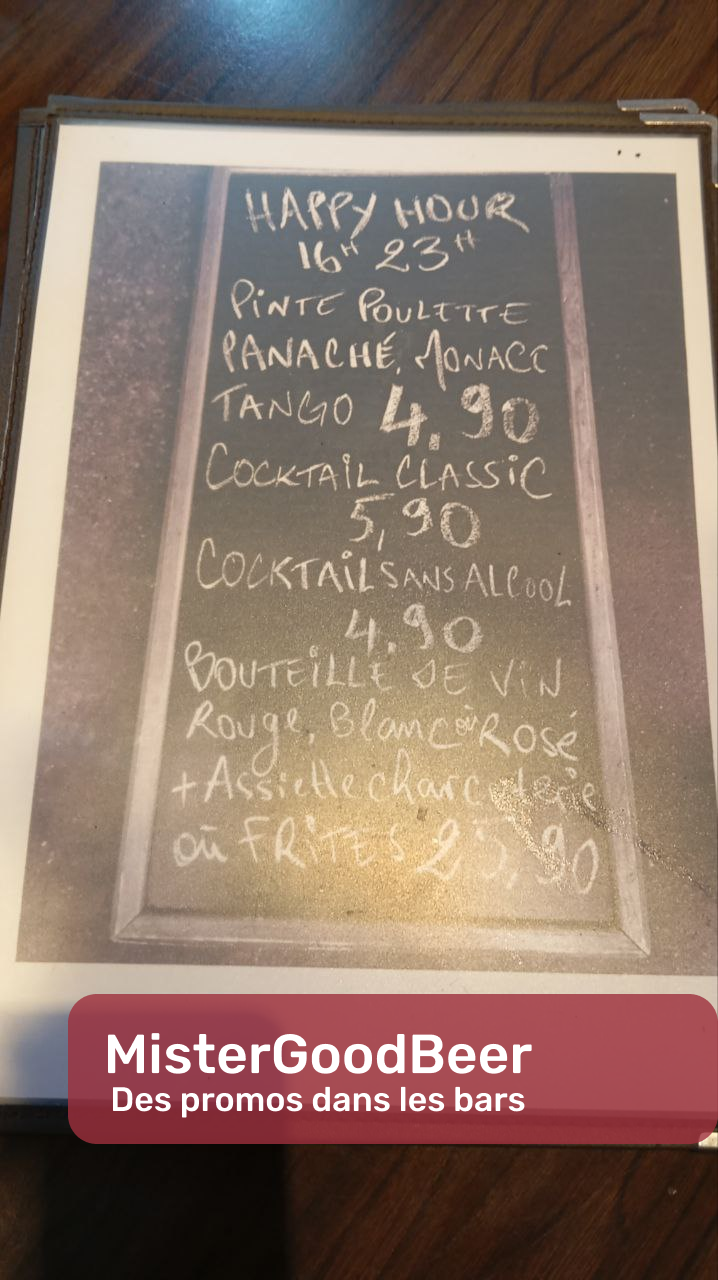 HAPPY HOUR
16H 23H
PINTE POULETTE
PANACHÉ, MONACO
TANGO 4,90
COCKTAIL CLASSIC
5,90
COCKTAIL SANS ALCOOL
4,90
BOUTEILLE DE VIN
Rouge, Blanc où Rosé
+ Assiette charcuterie
où FRITES 25,90
MisterGoodBeer
Des promos dans les bars